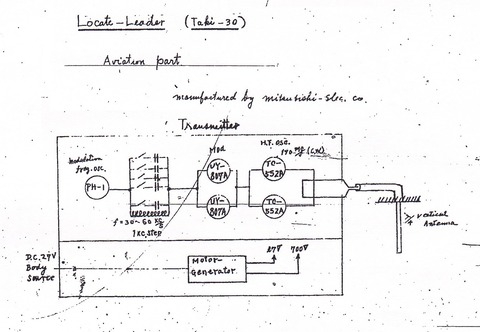 Locate-Leader (Taki-30)
Aviation part
manufactured by Mitsubishi-Elec. co.
Transmitter
Modulation freq. osc.
PH-1
f = 30~60 KC/S
1 KC. step
Mod
UY-807A
UY-807A
H.F. osc.
TC-552A
TC-552A
Vertical
Antenna
D.C. 27V
Body
Source
Motor-
Generator
27V
700V